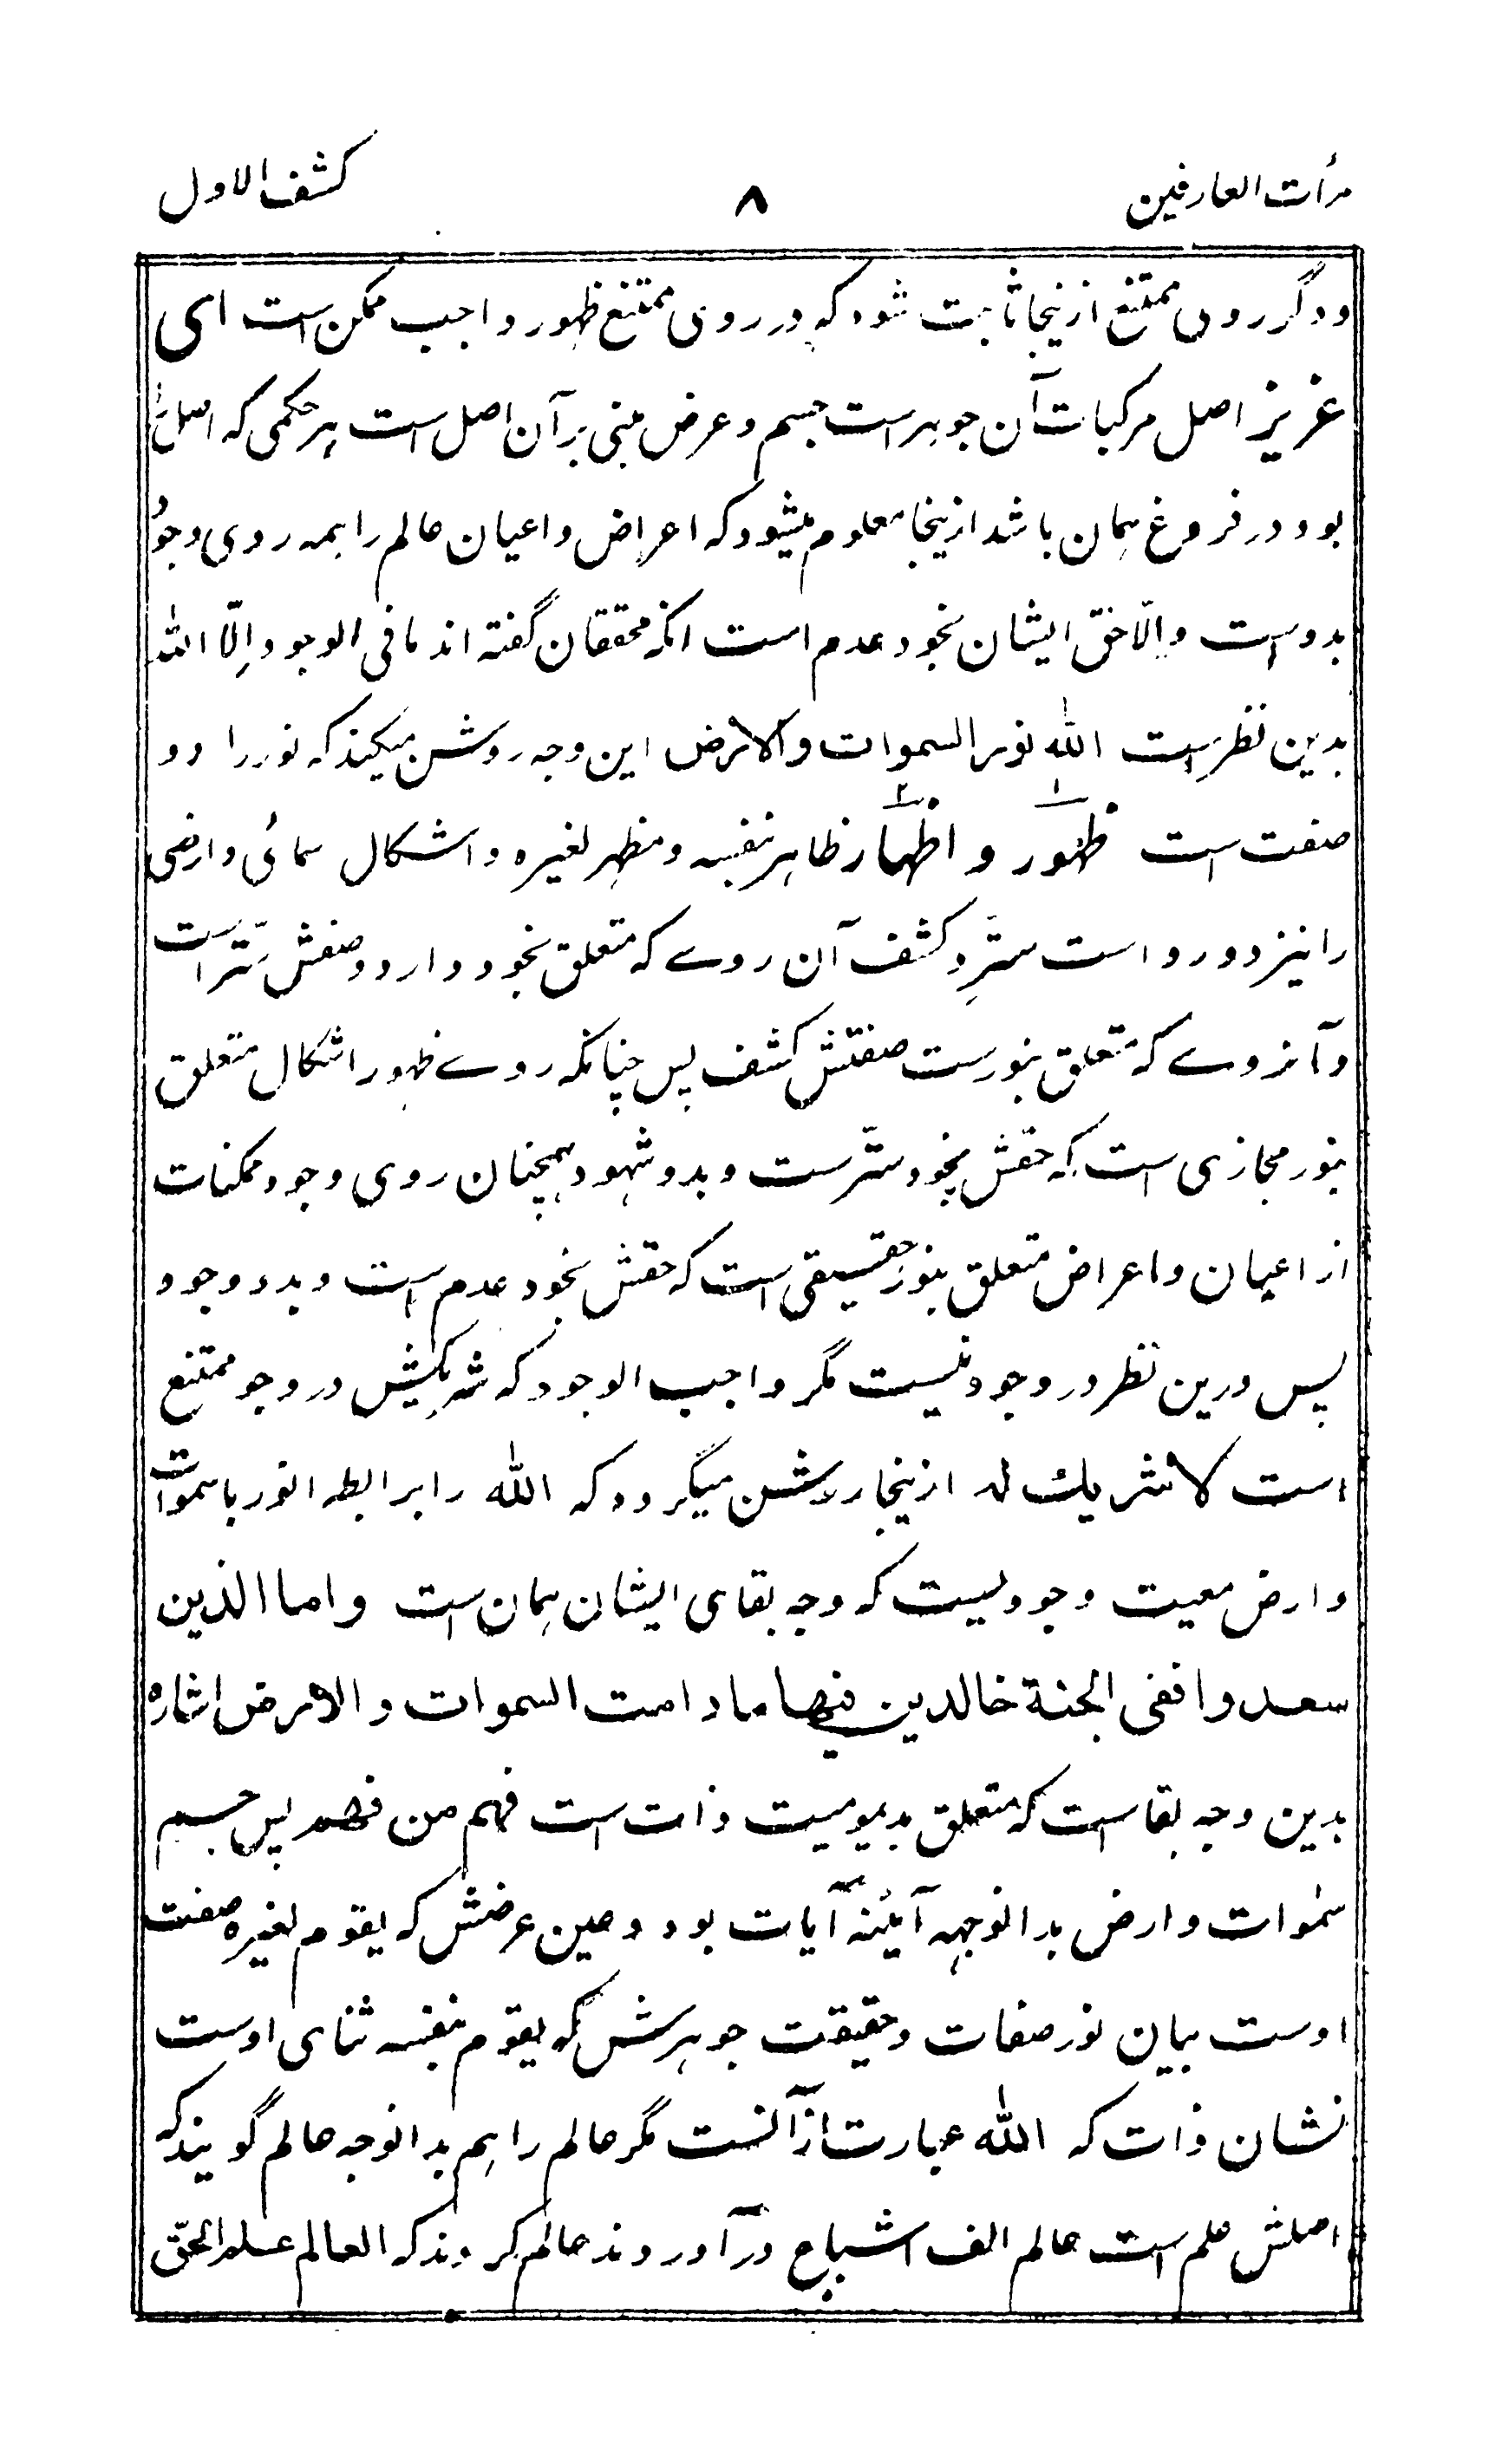 مرأت العارفین ۸ کشف الاول
ودگر روی ممتنع ازینجا ثابت شود که در روی ممتنع ظهور واجب ممکن است ای
عزیز اصل مرکبات آن جوهر است جسم و عرض مبنی بر آن اصل است هر حکمی که اصل را
بود در فروغ همان باشد ازینجا معلوم میشود که اعراض و اعیان عالم را همه روی وجود
بدوست والّا حق ایشان بخود عدم است انکه محققان گفته اند ما فی الوجود اِلّا الله
بدین نظرست الله نور السموات والارض این وجه روشن میکند که نور را دو
صفت است ظهور و اظهار ظاهر بنفسه و مظهر لغیره و اشکال سمائی و ارضی
را نیز دو رو است ستّر و کشف آن روے که متعلق بخود دارد وصفش ستّر است
و آنروے که متعلق بنورست صفتش کشف پس چنانکه روے ظهور اشکال متعلق
بنور مجازی است که حقش بخود ستّرست و بدو شهود همچنان روی وجود ممکنات
از اعیان و اعراض متعلق بنور حقیقی است که حقش بخود عدم است و بدو وجود
پس درین نظر در وجود نیست مگر واجب الوجود که شریکیش در وجو ممتنع
است لا شریك له ازینجا روشن میگردد که الله را برابطه النور با سموات
و ارض معیت وجودیست که وجه بقای ایشان همان ست واما الذین
سعدوا ففی الجنة خالدین فیها ما دامت السموات والارض اشاره
بدین وجه بقاست که متعلق بدیمومیت ذات ست فهم من فهم پس جسم
سموات و ارض بدانوجهه آیئنه آیات بود و عین عرضش که یقوم لغیره صفت
اوست بیان نور صفات و حقیقت جوهرش که یقوم بنفسه ثنای اوست
نشان ذات که الله عبارت از آنست مگر عالم را هم بدانوجه عالم گویند که
اصلش علم است عالم الف اشباع درآوردند عالم کردند که العالم علم الحقّ